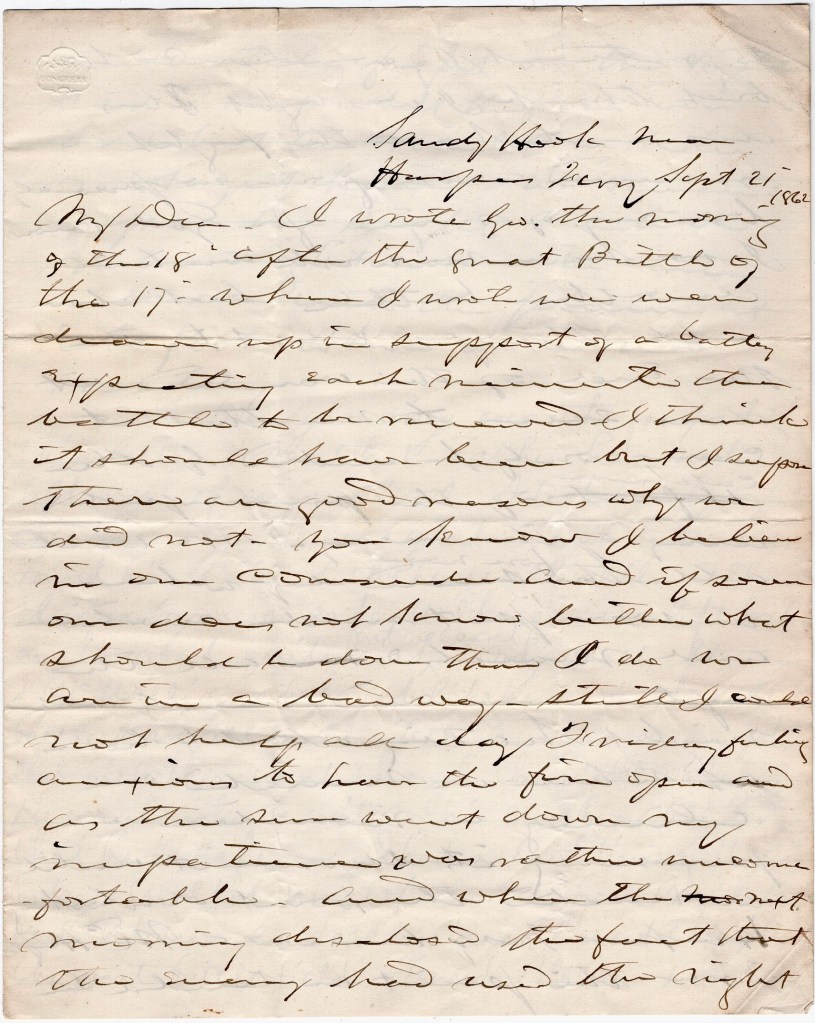 Sandy Hook near
Harpers Ferry Sept 21
1862
My Dear. I wrote Geo. the morning
of the 18" after the great Battle of
the 17" when I wrote we were
drawn up in support of a battery
expecting each minute the
battle to be renewed I think
it should have been but I suppose
there are good reasons why we
did not - you know I believe
in our Commander and if some
one does not know better what
should be done than I do we
are in a bad way - still I could
not help all day Friday feeling
anxious to have the fire open and
as the sun went down my
impatience was rather uncom
-fortable. And when the next
morning disclosed the fact that
the enemy had used the night